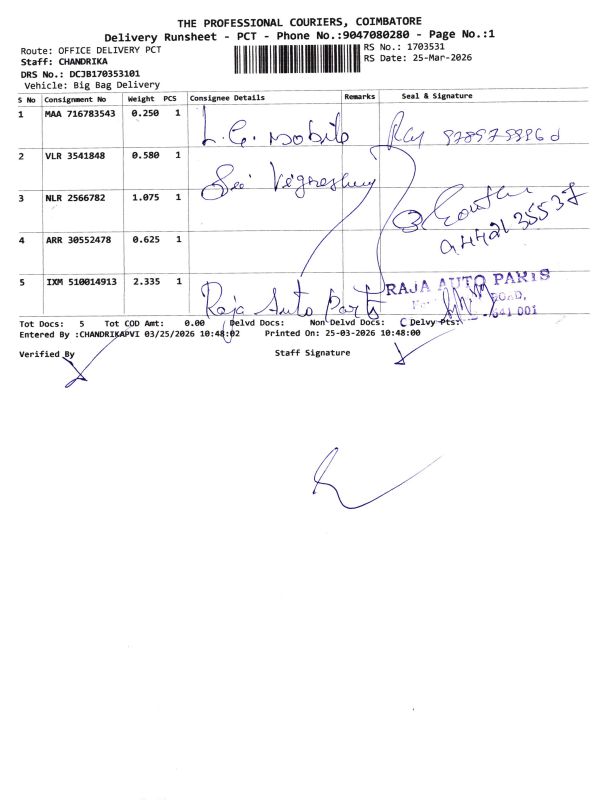 THE PROFESSIONAL COURIERS, COIMBATORE
Delivery Runsheet - PCT - Phone No.:9047080280 - Page No.:1
Route: OFFICE DELIVERY PCT
RS No.: 1703531
Staff: CHANDRIKA
RS Date: 25-Mar-2026
DRS No.: DCJB170353101
Vehicle: Big Bag Delivery
S No Consignment No Weight PCS Consignee Details Remarks Seal & Signature
1 MAA 716783543 0.250 1 L.G. Mobile
2 VLR 3541848 0.580 1 Sri
3 NLR 2566782 1.075 1
4 ARR 30552478 0.625 1
5 IXM 510014913 2.335 1 Raja Auto Parts
RAJA AUTO PARTS
ROAD,
641 001
Tot Docs: 5 Tot COD Amt: 0.00 Delvd Docs: Non Delvd Docs: C Delvy Pts:
Entered By :CHANDRIKAPVI 03/25/2026 10:48:02 Printed On: 25-03-2026 10:48:00
Verified By Staff Signature